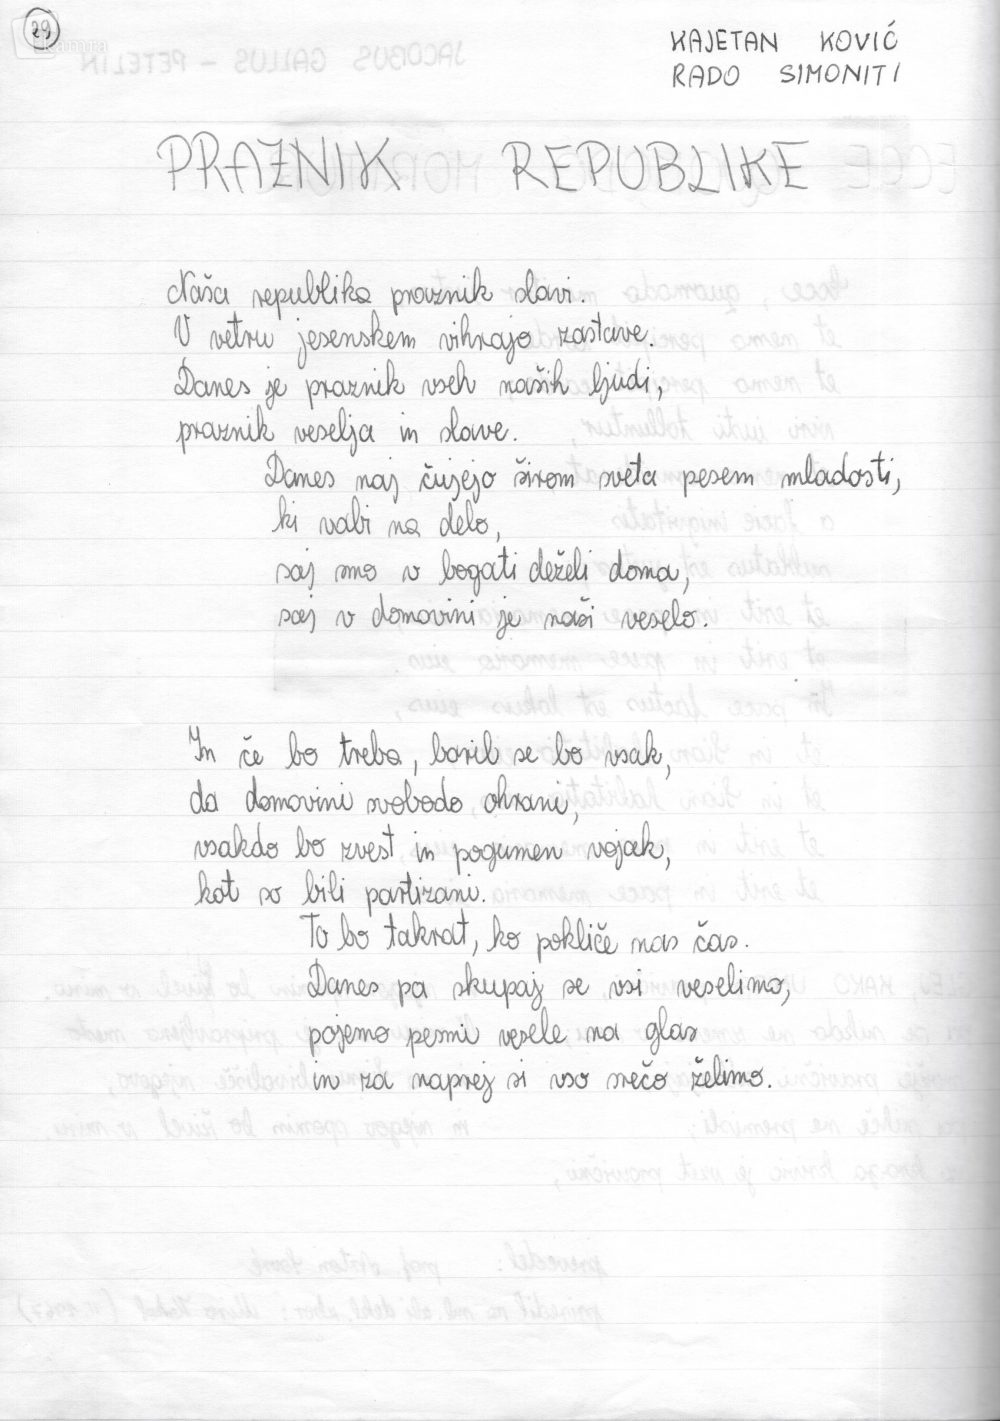 29
KAJETAN KOVIĆ
RADO SIMONITI
PRAZNIK REPUBLIKE
Naša republika praznik slavi.
V vetru jesenskem vihrajo zastave.
Danes je praznik vseh naših ljudi,
praznik veselja in slave.
Danes naj čujejo širom sveta pesem mladosti,
ki vabi na delo,
saj smo v bogati deželi doma,
saj v domovini je naši veselo.
In če bo treba, borili se bo vsak,
da domovini svobodo ohrani,
vsakdo bo zvest in pogumen vojak,
kot so bili partizani.
To bo takrat, ko pokliče nas čas.
Danes pa skupaj se vsi veselimo,
pojemo pesmi vesele na glas
in za naprej si vso srečo želimo.